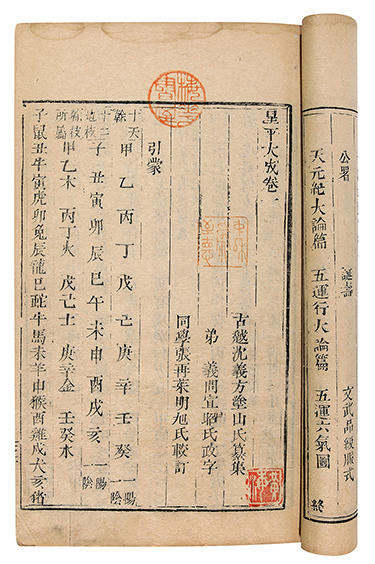 公署 誕壽 文武品級服式
天元紀大論篇 五運行大論篇 五運六氣圖 終
星平大成卷一
古越沈義方塗山氏纂集
弟 義問宣昭氏政字
同學張再萊明旭氏較訂
引蒙
十天幹 甲乙丙丁戊己庚辛壬癸 一陽一陰
十二地枝 子丑寅卯辰巳午未申酉戌亥 一陽一陰
幹枝所屬 甲乙木 丙丁火 戊己土 庚辛金 壬癸水
子鼠丑牛寅虎卯兔辰龍巳蛇午馬未羊申猴酉雞戌犬亥猪